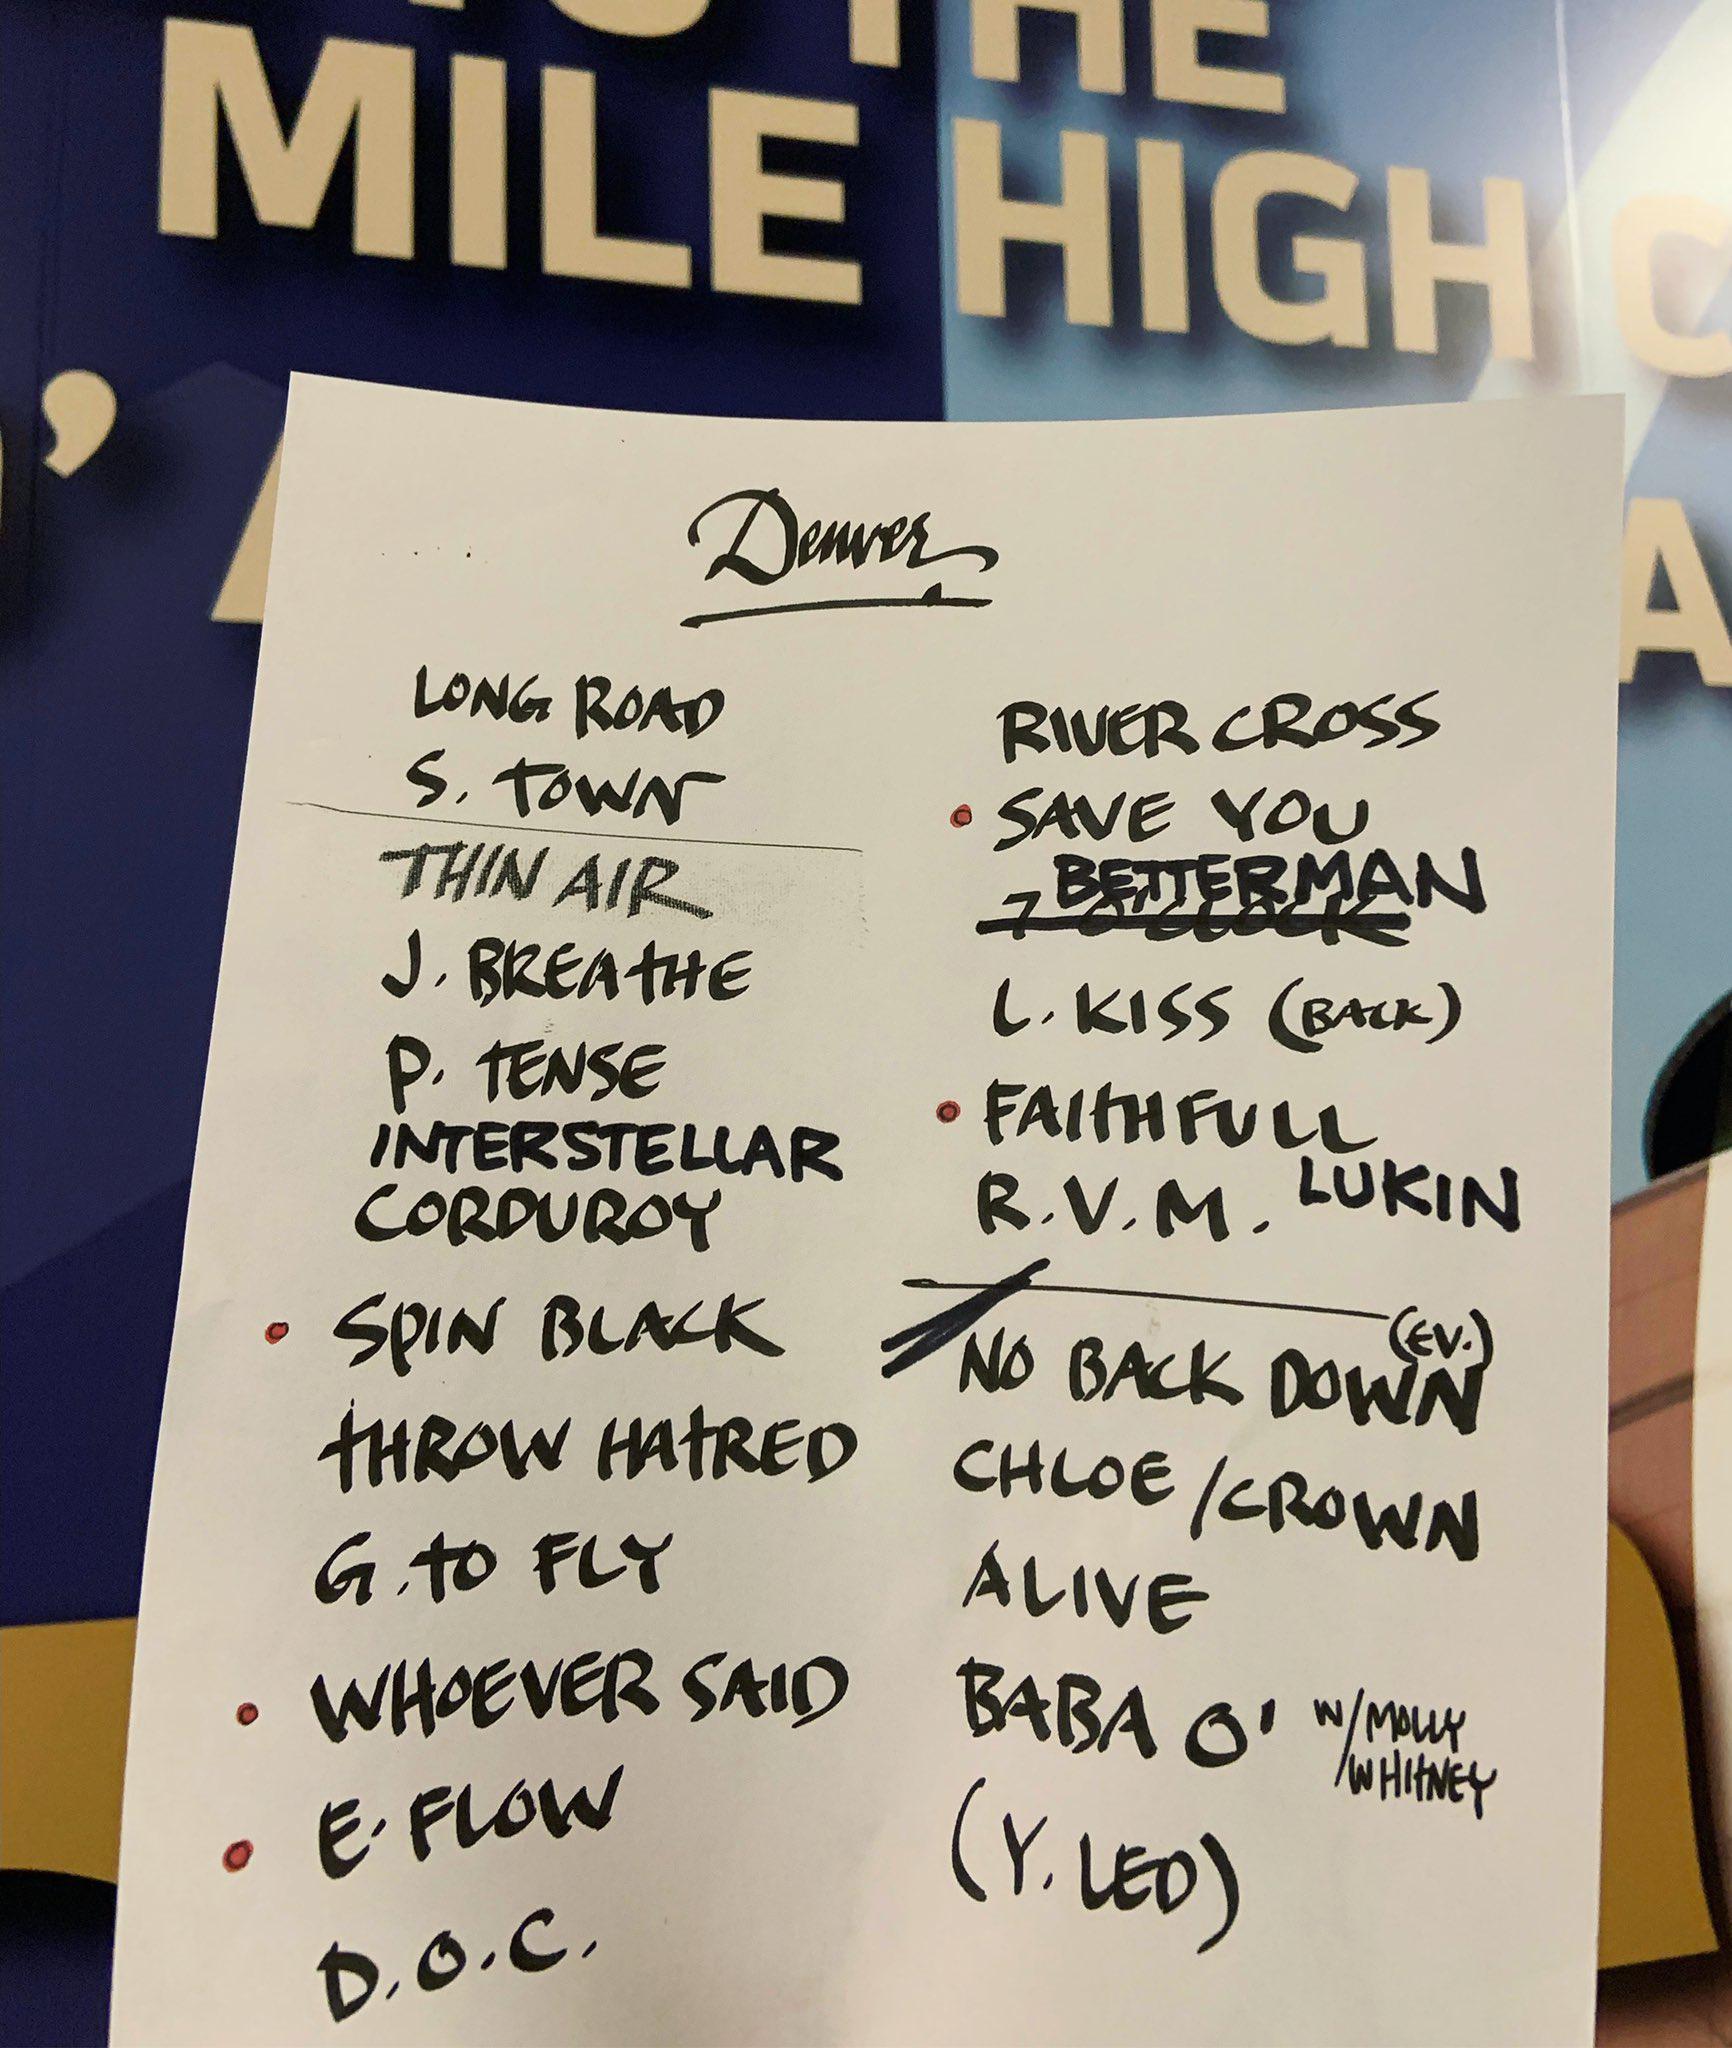 THE
MILE HIGH C
Denver
LONG ROAD
S. TOWN
THIN AIR
J. BREATHE
P. TENSE
INTERSTELLAR
CORDUROY
SPIN BLACK
THROW HATRED
G. TO FLY
WHOEVER SAID
E. FLOW
D.O.C.
RIVER CROSS
SAVE YOU
BETTERMAN
7 O'CLOCK
L. KISS (BACK)
FAITHFULL
R.V.M. LUKIN
(EV.)
NO BACK DOWN
CHLOE /CROWN
ALIVE
BABA O' W/MOLLY
WHITNEY
(Y. LED)